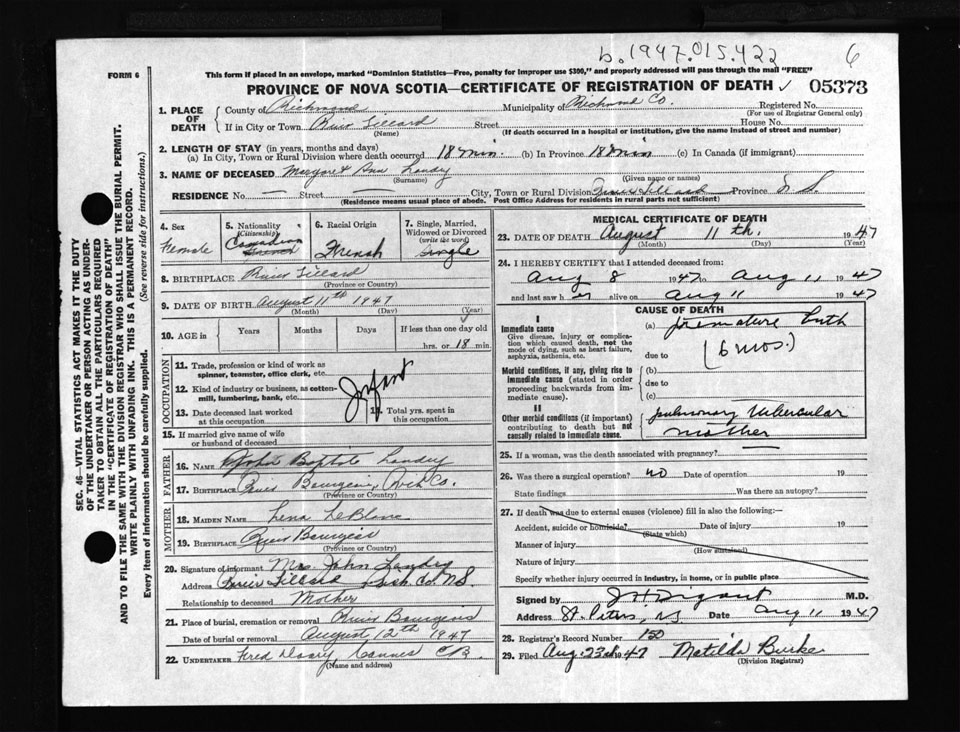 b. 1947.015.422
6
FORM 6
This form if placed in an envelope, marked "Dominion Statistics—Free, penalty for improper use $300," and properly addressed will pass through the mail "FREE"
PROVINCE OF NOVA SCOTIA—CERTIFICATE OF REGISTRATION OF DEATH ✓ 05373
SEC. 46—VITAL STATISTICS ACT MAKES IT THE DUTY
OF THE UNDERTAKER OR PERSON ACTING AS UNDER-
TAKER TO OBTAIN ALL THE PARTICULARS REQUIRED
IN THE "CERTIFICATE OF REGISTRATION OF DEATH"
AND TO FILE THE SAME WITH THE DIVISION REGISTRAR WHO SHALL ISSUE THE BURIAL PERMIT.
WRITE PLAINLY WITH UNFADING INK. THIS IS A PERMANENT RECORD.
Every item of information should be carefully supplied. (See reverse side for instructions.)
1. PLACE OF DEATH
County of Richmond Municipality of Richmond Co. Registered No.
(For use of Registrar General only)
If in City or Town River Tillard Street House No.
(Name) (If death occurred in a hospital or institution, give the name instead of street and number)
2. LENGTH OF STAY (in years, months and days)
(a) In City, Town or Rural Division where death occurred 18 min. (b) In Province 18 min (c) In Canada (if immigrant)
3. NAME OF DECEASED Margaret Ann Landry
(Surname) (Given name or names)
RESIDENCE No. — Street — City, Town or Rural Division River Tillard Province N.S.
(Residence means usual place of abode. Post Office Address for residents in rural parts not sufficient)
4. Sex
Female
5. Nationality
(Citizenship)
Canadian
French
6. Racial Origin
French
7. Single, Married,
Widowed or Divorced
(write the word)
Single
8. BIRTHPLACE River Tillard
(Province or County)
9. DATE OF BIRTH August 11th 1947
(Month) (Day) (Year)
10. AGE in Years Months Days If less than one day old
hrs. or 18 min.
OCCUPATION
11. Trade, profession or kind of work as
spinner, teamster, office clerk, etc.
12. Kind of industry or business, as cotton-
mill, lumbering, bank, etc.
Infant
13. Date deceased last worked
at this occupation
14. Total yrs. spent in
this occupation
15. If married give name of wife
or husband of deceased
FATHER
16. NAME John Baptiste Landry
17. BIRTHPLACE River Bourgeois, Rich Co.
(Province or County)
MOTHER
18. MAIDEN NAME Lena LeBlanc
19. BIRTHPLACE River Bourgeois
(Province or County)
20. Signature of informant Mrs. John Landry
Address River Tillard Rich. Co. N.S.
Relationship to deceased Mother
21. Place of burial, cremation or removal River Bourgeois
Date of burial or removal August 12th 1947
22. UNDERTAKER Fred Doary Cannes C.B.
(Name and address)
MEDICAL CERTIFICATE OF DEATH
23. DATE OF DEATH August 11th. 1947
(Month) (Day) (Year)
24. I HEREBY CERTIFY that I attended deceased from:
Aug 8 1947 to Aug 11 1947
and last saw her alive on Aug 11 1947
CAUSE OF DEATH
I
Immediate cause
Give disease, injury or complica-
tion which caused death, not the
mode of dying, such as heart failure,
asphyxia, asthenia, etc.
(a) premature birth
(6 mos.)
due to
Morbid conditions, if any, giving rise to
immediate cause (stated in order
proceeding backwards from im-
mediate cause).
(b)
due to
(c)
II
Other morbid conditions (if important)
contributing to death but not
causally related to immediate cause.
pulmonary tubercular
mother
25. If a woman, was the death associated with pregnancy?
26. Was there a surgical operation? no Date of operation 19
State findings Was there an autopsy?
27. If death was due to external causes (violence) fill in also the following:—
Accident, suicide or homicide? Date of injury 19
(State which)
Manner of injury
(How sustained)
Nature of injury
Specify whether injury occurred in industry, in home, or in public place
Signed by M.D.
Address St. Peters, NS Date Aug 11 1947
28. Registrar's Record Number 150
29. Filed Aug. 23rd 1947 Matilda Burke
(Division Registrar)